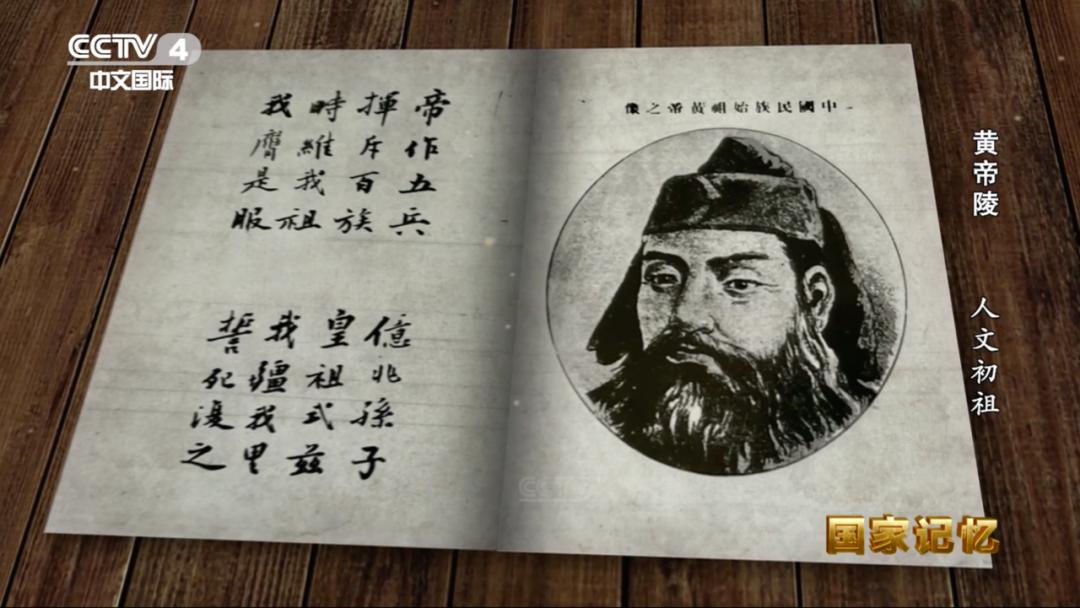 CCTV 4
中文国际
帝作五兵
揮斥百族
時維我祖
我膺是服
億兆孫子
皇祖式茲
我疆我里
誓死復之
中國民族始祖黃帝之像
黄帝陵
人文初祖
CCTV
国家记忆